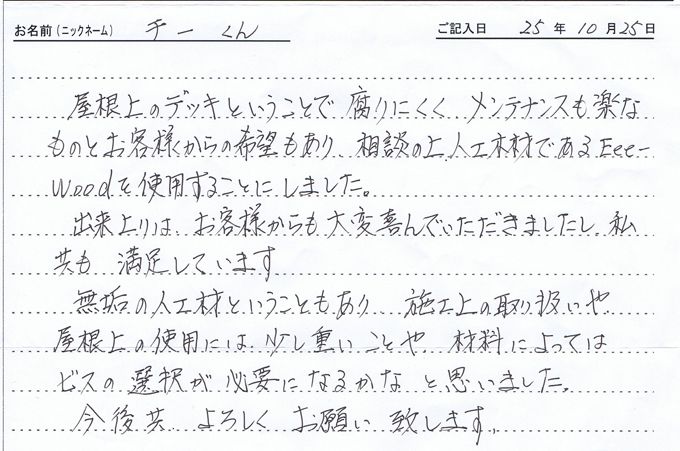 お名前(ニックネーム) チーくん ご記入日 25年10月25日
屋根上のデッキということで腐りにくく メンテナンスも楽な
ものとお客様からの希望もあり 相談の上人工木材であるEee-
Woodを使用することにしました。
出来上りは、お客様からも大変喜んでいただきましたし、私
共も 満足しています
無垢の人工材ということもあり 施工上の取り扱いや
屋根上の使用には、少し重いことや 材料によっては
ビスの選択が必要になるかな と思いました。
今後共 よろしく お願い致します。